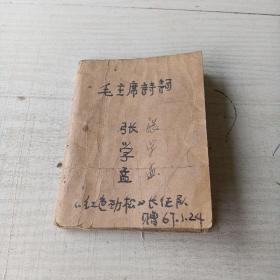 毛主席詩詞
张 张
学 学
孟 孟
《红色劲松》长征队
贈 67.1.24